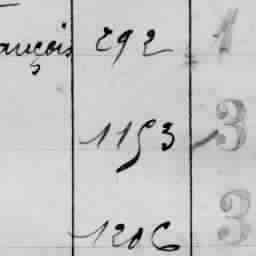 ançois 292 1
1153 3
1206 3